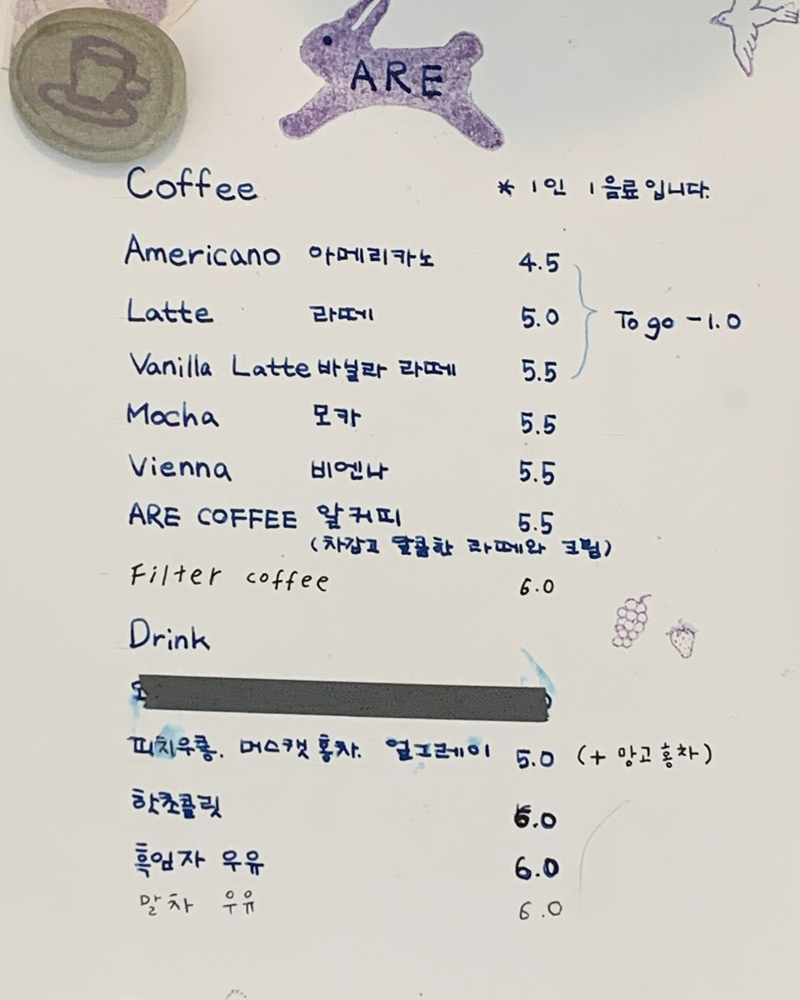 ARE
Coffee * 1인 1음료입니다.
Americano 아메리카노 4.5
Latte 라떼 5.0 To go -1.0
Vanilla Latte 바닐라 라떼 5.5
Mocha 모카 5.5
Vienna 비엔나 5.5
ARE COFFEE 알커피 5.5
(차갑고 달콤한 라떼와 크림)
Filter coffee 6.0
Drink
피치우롱. 머스캣홍차. 얼그레이 5.0 (+ 망고홍차)
핫초콜릿 6.0
흑임자 우유 6.0
말차 우유 6.0